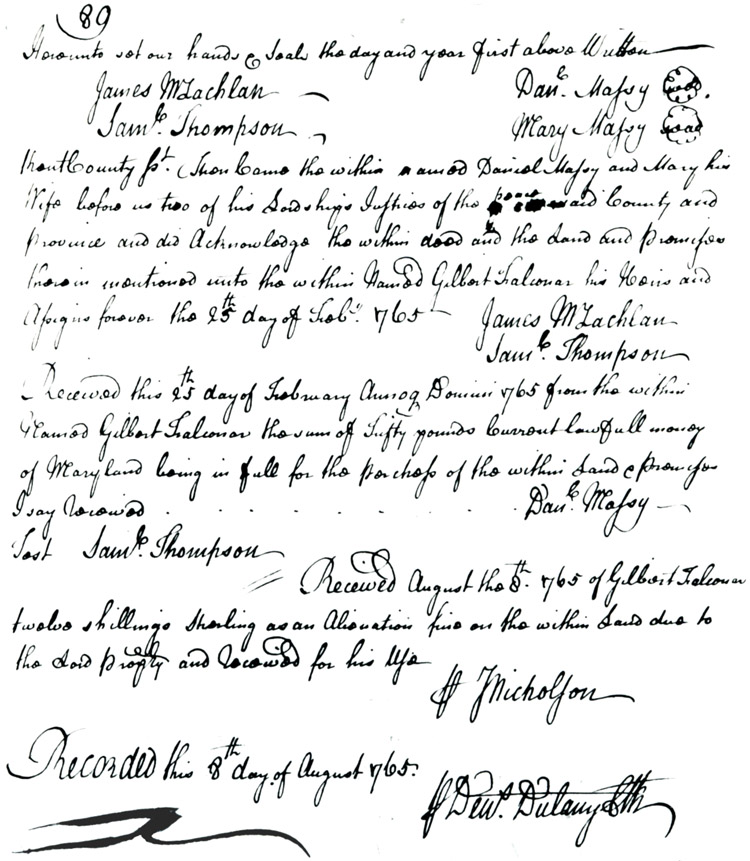 89
Hereunto set our hands & Seals the day and year first above Written
James McLachlan Danl. Massy Seal.
Saml. Thompson Mary Massy Seal
Kent County Sst. Then Came the within named Daniel Massy and Mary his
Wife before us two of his Lordships Justices of the peace said County and
province and did Acknowledge the within deed and the Land and Premises
therein mentioned unto the within Named Gilbert Falconar his Heirs and
Assigns forever the 25th day of Feby. 1765 James McLachlan
Saml. Thompson
Received this 25th day of February Annoq Domini 1765 from the within
Named Gilbert Falconar the sum of Fifty pounds Current lawfull money
of Maryland being in full for the purchass of the within Land & Premises
I say Received Danl. Massy
Test Saml. Thompson
Received August the 8th. 1765 of Gilbert Falconar
twelve shillings Sterling as an Alienation fine on the within Land due to
the Lord Propty and received for his Use
JNicholson
Recorded this 8th day of August 1765.
Dens. Dulany Clk